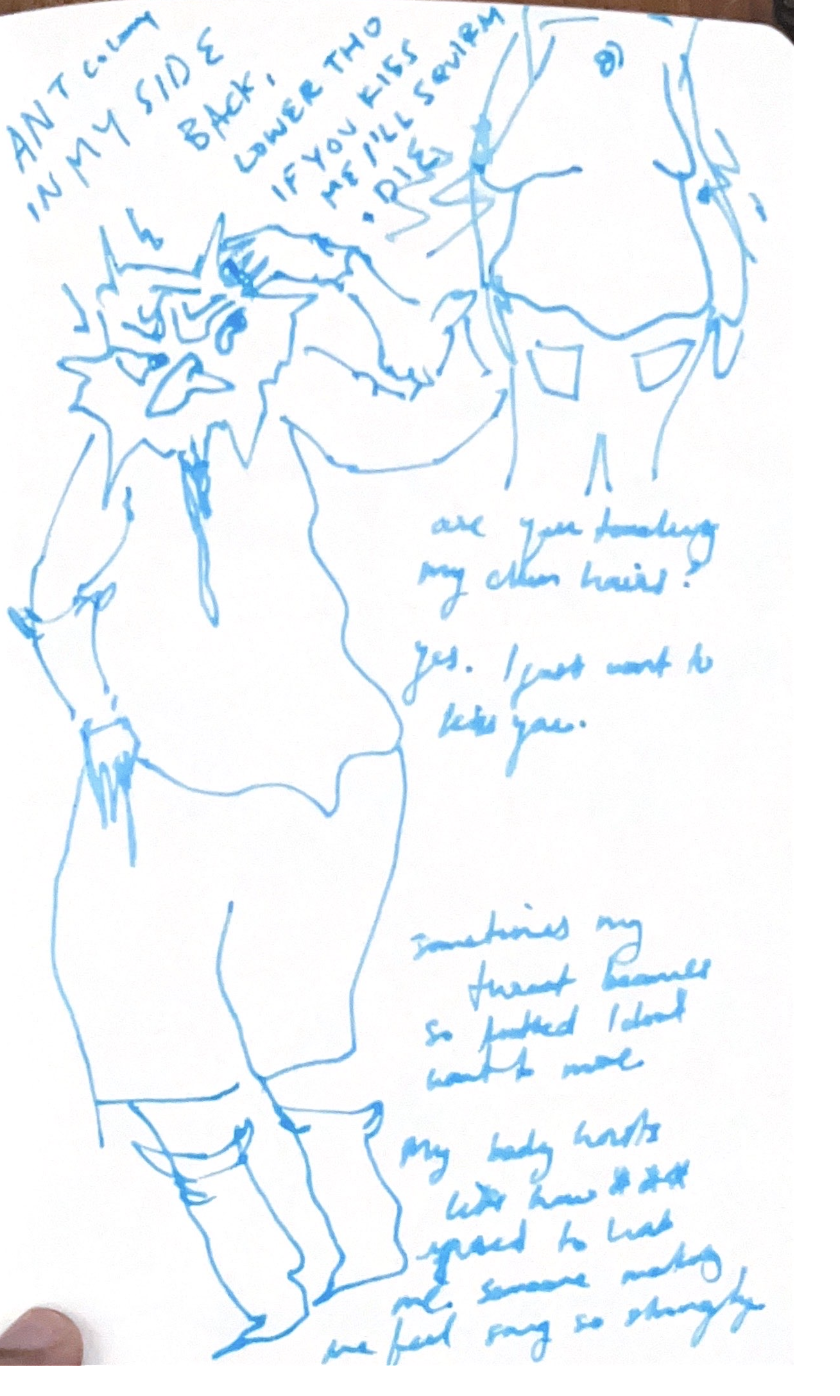 ANT colony
IN MY SIDE
BACK,
LOWER THO
IF YOU KISS
ME I'LL SQUIRM
. DIE.
are you touching
my chin hairs?
yes. I just want to
kiss you.
sometimes my
throat becomes
so I dont
want to move
My body hurts
how ***
used to hurt
me. someone making
me feel so strongly.